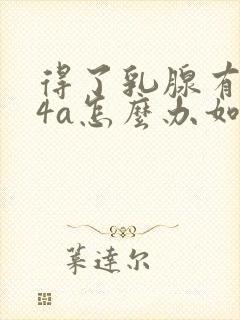 得了乳腺有
4a怎麽办如
莱達尔